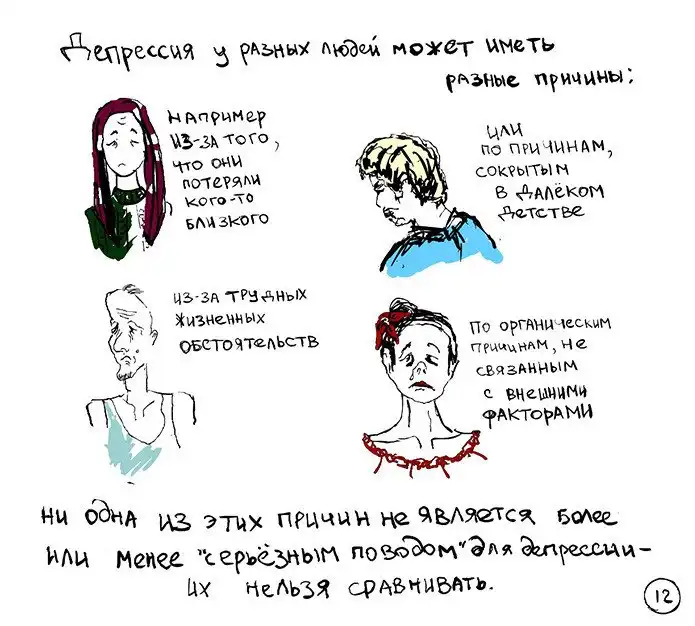 Депрессия у разных людей может иметь
разные причины:
например
из-за того,
что они
потеряли
кого-то
близкого
или
по причинам,
сокрытым
в далёком
детстве
из-за трудных
жизненных
обстоятельств
по органическим
причинам, не
связанным
с внешними
факторами
ни одна из этих причин не является более
или менее "серьёзным поводом" для депрессии-
их нельзя сравнивать.
12